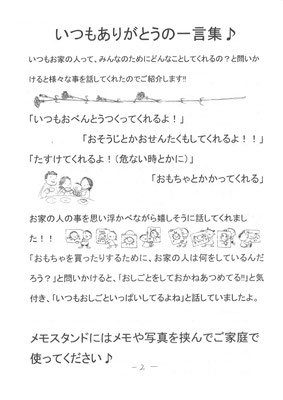 いつもありがとうの一言集♪
いつもお家の人って、みんなのためにどんなことしてくれるの？と問いか
けると様々な事を話してくれたのでご紹介します!!
「いつもおべんとうつくってくれるよ！」
「おそうじとかおせんたくもしてくれるよ！！」
「たすけてくれるよ！（危ない時とかに）」
「おもちゃとかかってくれる」
お家の人の事を思い浮かべながら嬉しそうに話してくれまし
た！！
「おもちゃを買ったりするために、お家の人は何をしているんだ
ろう？」と問いかけると、「おしごとをしておかねあつめてる!!」と気
付き、「いつもおしごといっぱいしてるよね」と話していましたよ。
メモスタンドにはメモや写真を挟んでご家庭で
使ってください♪
-2-